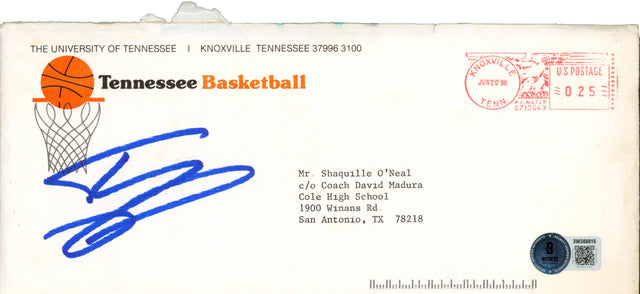 THE UNIVERSITY OF TENNESSEE | KNOXVILLE, TENNESSEE 37996-3100
Tennessee Basketball
KNOXVILLE
JUN 20 '88
TENN
U.S. POSTAGE
0 2 5
Mr. Shaquille O'Neal
c/o Coach David Madura
Cole High School
1900 Winans Rd.
San Antonio, TX 78218
B
WITNESS